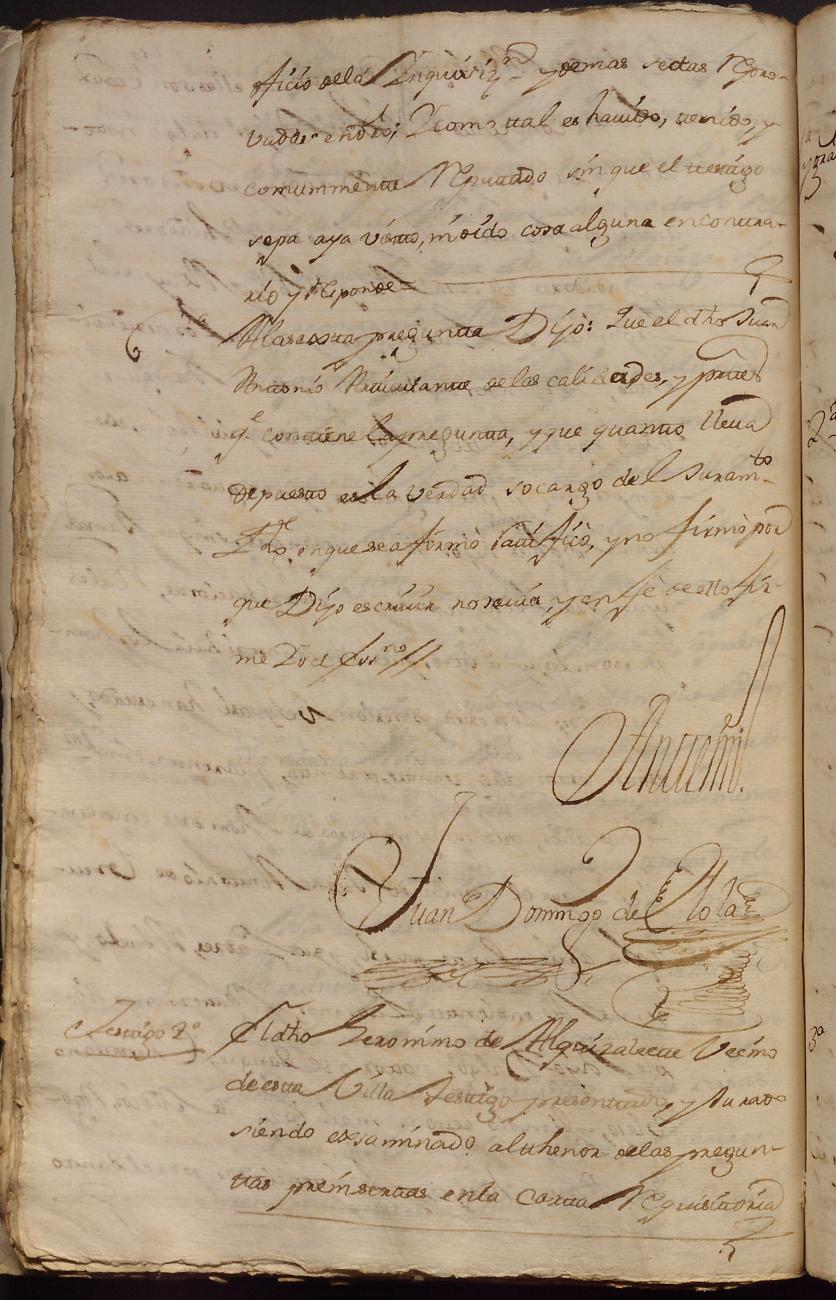 ficio dela Ynquisizn y demas sectas Repro-
vadas en dro; Y como tal es hauido, tenido, y
comunmente Reputado sin que el testigo
sepa aya visto, ni oido cosa alguna en contra-
rio y Responde
6 A la sexta pregunta Dijo: Que el dho Juan
Antonio de las calidades, y partes
qe contiene la pregunta, y que quanto lleua
depuesto es la verdad so cargo del Juramto
Dho, en que se afirmò ratificò, y no firmò por
que Dijo escriuir no sauia, y en fè de ello fir-
mè Yo el Essno //
Antemi.
Juan Domingo de Olola
Testigo 2o El dho Geronimo de Alquizalecte Vecino
de esta Villa Testigo presentado, y Jurado
siendo exsaminado al thenor de las pregun-
tas preinsertas en la Carta Requisitoria